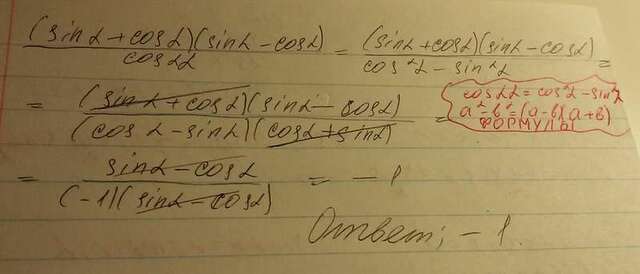 (sinα + cosα)(sinα - cosα) / cos2α = (sinα + cosα)(sinα - cosα) / cos²α - sin²α =
= (sinα + cosα)(sinα - cosα) / (cosα - sinα)(cosα + sinα) =
cos2α = cos²α - sin²α
a² - b² = (a - b)(a + b)
ФОРМУЛЫ
= sinα - cosα / (-1)(sinα - cosα) = -1
Ответ: -1.